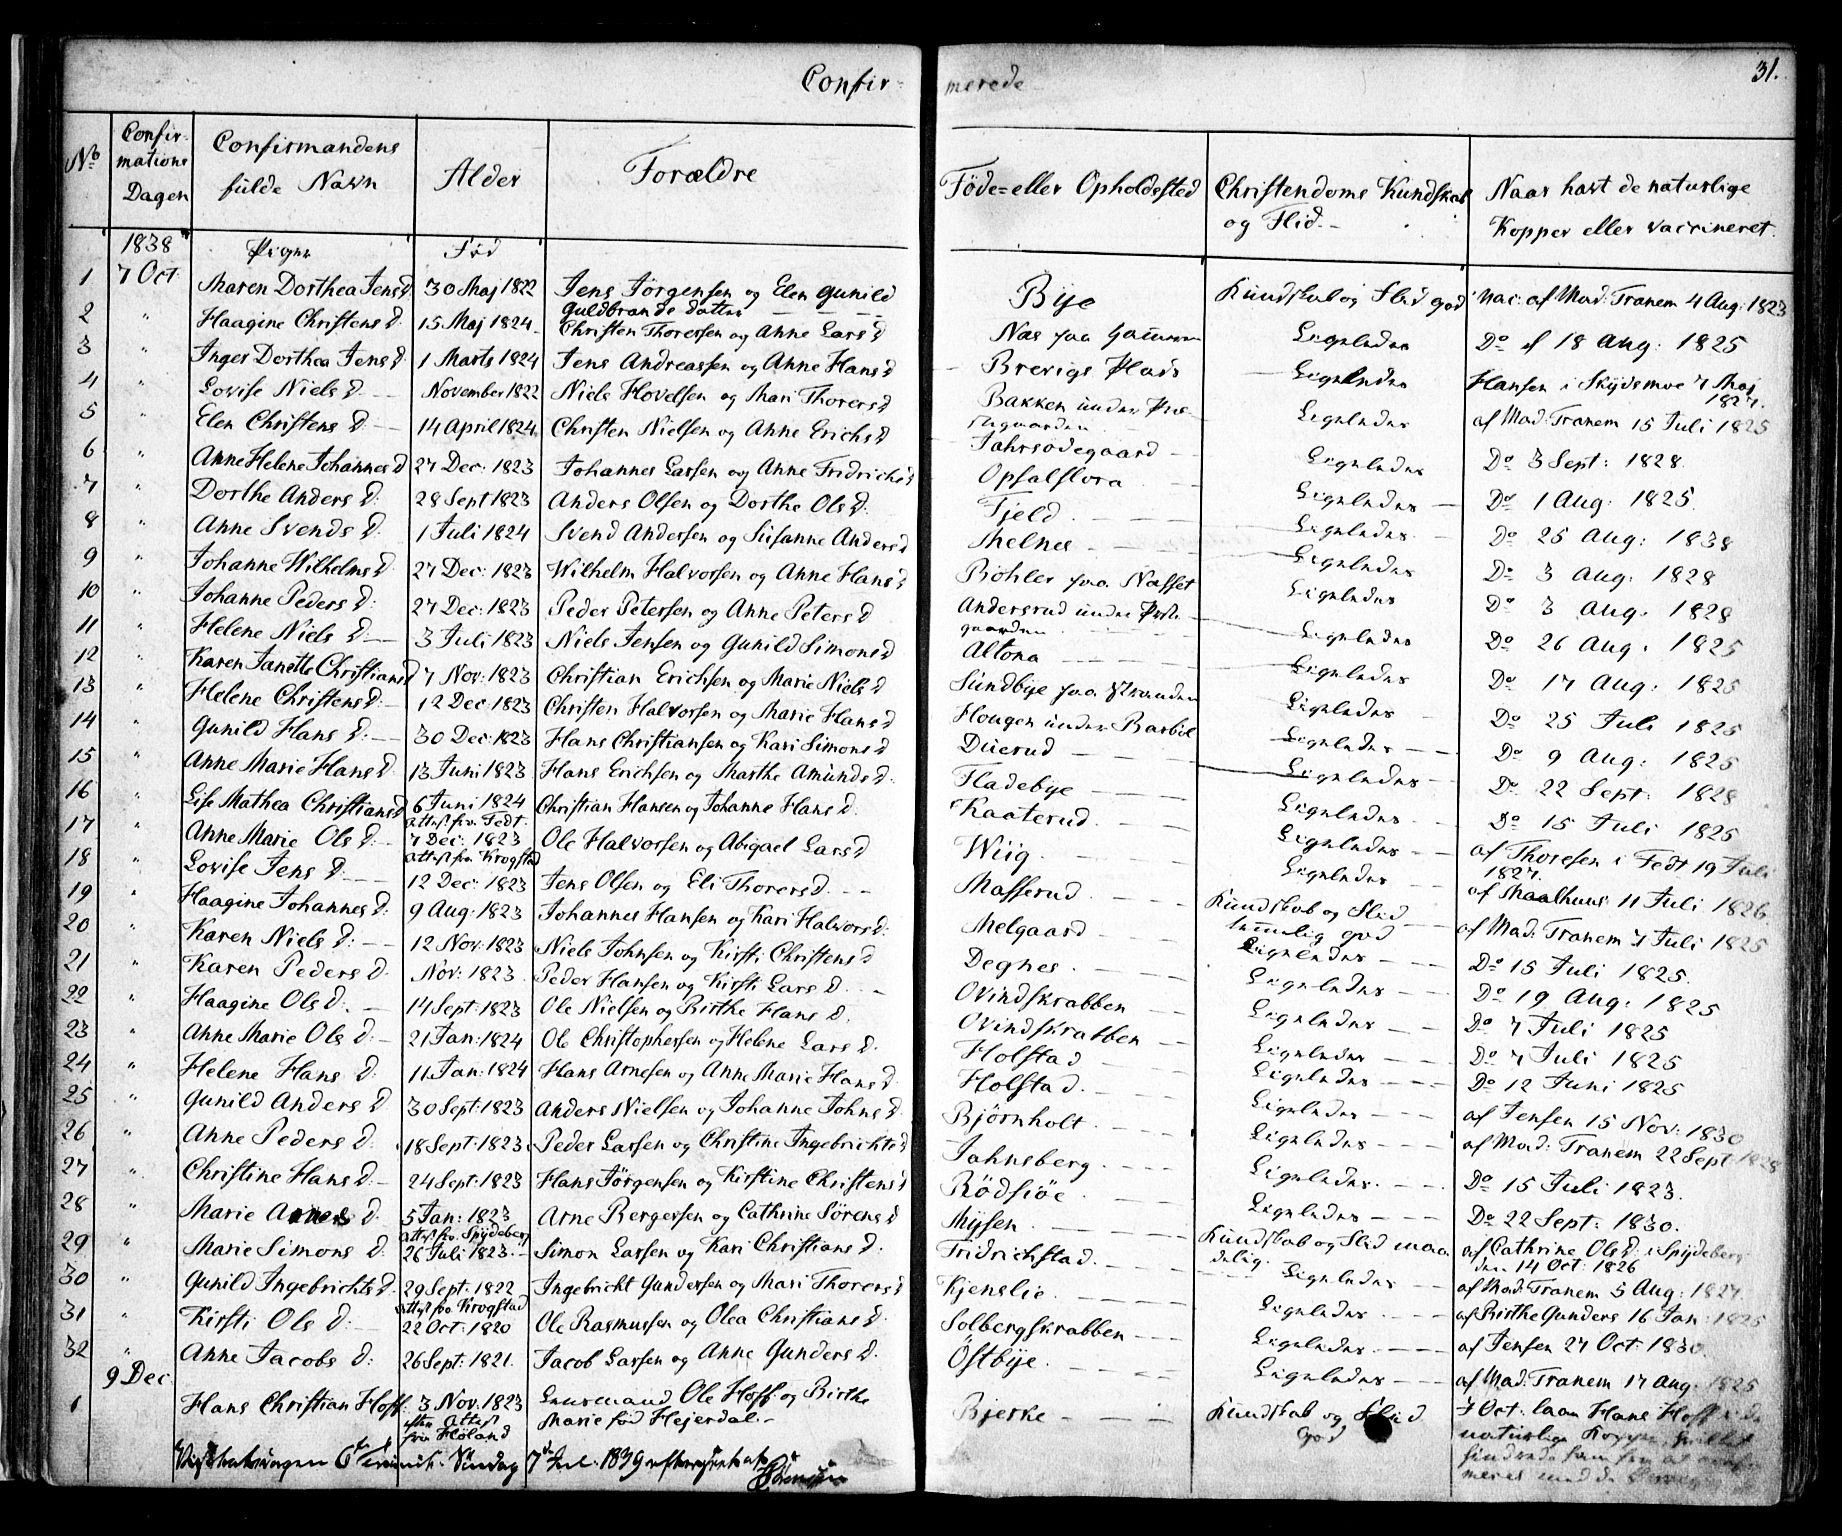 Confir- merede 31.
No Confir- mations Dagen Confirmandens fulde Navn Alder Forældre Föde= eller Opholdssted Christendoms Kundskab og Flid. Naar havt de naturlige Kopper eller vaccineret.
1838 Piger Fød
1 7 Oct. Maren Dorthea Jens D 30 Maj 1822 Jens Jörgensen og Elen Gunild Guldbrands datter Bye Kundskab og Flid god Vac: af Mad: Tranem 4 Aug: 1823
2 " Haagine Christens D. 15 Maj 1824 Christen Thoresen og Anne Lars D Næs paa Ligeledes Do af 18 Aug: 1825
3 " Inger Dorthea Jens D. 1 Marts 1824 Jens Andreassen og Anne Hans D Brevigs Plads Ligeledes Hansen i Skydsmoe 7 Maj 1827.
4 " Lovise Niels D. November 1822 Niels Hovelsen og Mari Thorers D Bakken under Præstegaarden Ligeledes af Mad: Tranem 15 Juli 1825
5 " Elen Christens D. 14 April 1824 Christen Nielsen og Anne Erichs D Jahrsödegaard Ligeledes Do 3 Sept: 1828.
6 " Anne Helene Johannes D 27 Dec: 1823 Johannes Larsen og Anne Fridrichs D Opsalflora Ligeledes Do 1 Aug: 1825.
7 " Dorthe Anders D: 28 Sept 1823 Anders Olsen og Dorthe Ols D. Fjeld Ligeledes Do 25 Aug: 1838
8 " Anne Svends D. 1 Juli 1824 Svend Andersen og Susanne Anders D Melnes Ligeledes Do 3 Aug: 1828
9 " Johanne Wilhelms D. 27 Dec: 1823 Wilhelm Halvorsen og Anne Hans D Böhler paa Næsset Ligeledes Do 3 Aug: 1828
10 " Johanne Peders D: 27 Dec: 1823 Peder Petersen og Anne Peters D Andersrud under Præstegaarden Ligeledes Do 26 Aug: 1825
11 " Helene Niels D. 3 Juli 1823 Niels Jensen og Gunild Simons D Altona Ligeledes Do 17 Aug: 1825
12 " Karen Janette Christians D 7 Nov: 1823 Christian Erichsen og Marie Niels D Sundbye paa Stranden Ligeledes Do 25 Juli 1825
13 " Helene Christens D. 12 Dec: 1823 Christen Halvorsen og Marie Hans D Hougen under Barböl Ligeledes Do 9 Aug: 1825
14 " Gunild Hans D. 30 Dec: 1823 Hans Christiansen og Kari Simons D Duerud Ligeledes Do 22 Sept: 1828
15 " Anne Marie Hans D. 13 Juni 1823 Hans Erichsen og Marthe Amunds D. Fladebye Ligeledes Do 15 Juli 1825
16 " Lise Mathea Christians D 6 Juni 1824 Attest fra Fedt. Christian Hansen og Johanne Hans D. Kaaterud Ligeledes af Thoresen i Fedt 19 Juli 1827.
17 " Anne Marie Ols D. 7 Dec: 1823 Attest fra Krogstad Ole Halvorsen og Abigael Lars D Wiig Ligeledes af Maalhuus 11 Juli 1826
18 " Lovise Jens D. 12 Dec: 1823 Jens Olsen og Eli Thorers D. Masserud Kundskab og Flid temmelig god af Mad: Tranem 7 Juli 1825
19 " Haagine Johannes D: 9 Aug: 1823 Johannes Hansen og Kari Halvors D: Melgaard Ligeledes Do 15 Juli 1825.
20 " Karen Niels D: 12 Nov: 1823 Niels Johnsen og Kirsti Christens D Degnes Ligeledes Do 19 Aug: 1825
21 " Karen Peders D. Nov: 1823 Peder Hansen og Kirsti Lars D. Ovindskrabben Ligeledes Do 7 Juli 1825
22 " Haagine Ols D. 14 Sept: 1823 Ole Nielsen og Birthe Hans D. Ovindskrabben Ligeledes Do 7 Juli 1825
23 " Anne Marie Ols D. 21 Jan: 1824 Ole Christophersen og Helene Lars D. Holstad Ligeledes Do 12 Juni 1825
24 " Helene Hans D: 11 Jan: 1824 Hans Arnesen og Anne Marie Hans D Holstad Ligeledes af Jensen 15 Nov: 1830
25 " Gunild Anders D 30 Sept: 1823 Anders Nielsen og Johanne Johns D. Björnholt Ligeledes af Mad: Tranem 22 Sept: 1828
26 " Anne Peders D: 18 Sept: 1823 Peder Larsen og Christine Ingebrichts D Jahnsberg Ligeledes Do 15 Juli 1823.
27 " Christine Hans D. 24 Sept: 1823 Hans Jörgensen og Kirstine Christens D Rödsiöe Ligeledes Do 22 Sept: 1830.
28 " Marie Arnes D. 5 Jan: 1823 Attest fra Spydeberg Arne Bergersen og Cathrine Sörens D Mysen Kundskab og Flid maadelig. af Cathrine Ols D: i Spydeberg den 14 Oct: 1826
29 " Marie Simons D: 26 Juli 1823 Simon Larsen og Kari Christians D. Fridrichstad Ligeledes af Mad: Tranem 5 Aug: 1827.
30 " Gunild Ingebrichts D. 29 Sept: 1822 Attest fra Krogstad Ingebricht Gundersen og Mari Thorers D Kjenslie Ligeledes af Birthe Gunders 16 Jan: 1825
31 " Kirsti Ols D: 22 Oct: 1820 Ole Rasmussen og Olea Christians D. Solbergskrabben Ligeledes af Jensen 27 Oct: 1830.
32 " Anne Jacobs D: 26 Sept: 1821. Jacob Larsen og Anne Gunders D. Östbye Ligeledes af Mad: Tranem 17 Aug: 1825
9 Dec.
1 Hans Christian Hoff. 3 Nov: 1823 efter Attest fra Höland Lensmand Ole Hoff og Birthe Marie föd Hejerdal. Bjerke Kundskab og Flid god 7 Oct: laae Hans Hoff i de naturlige Kopper,
Visitatzen Söndag 7 Jul. 1839